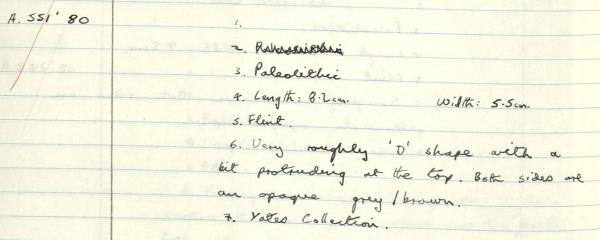 A. SSI' 80
1.
2.
3. Paleolithic
4. Length: 8.2cm. Width: 5.5cm.
5. Flint.
6. Very roughly 'D' shape with a
bit protruding at the top. Both sides are
an opaque grey/brown.
7. Yates Collection.